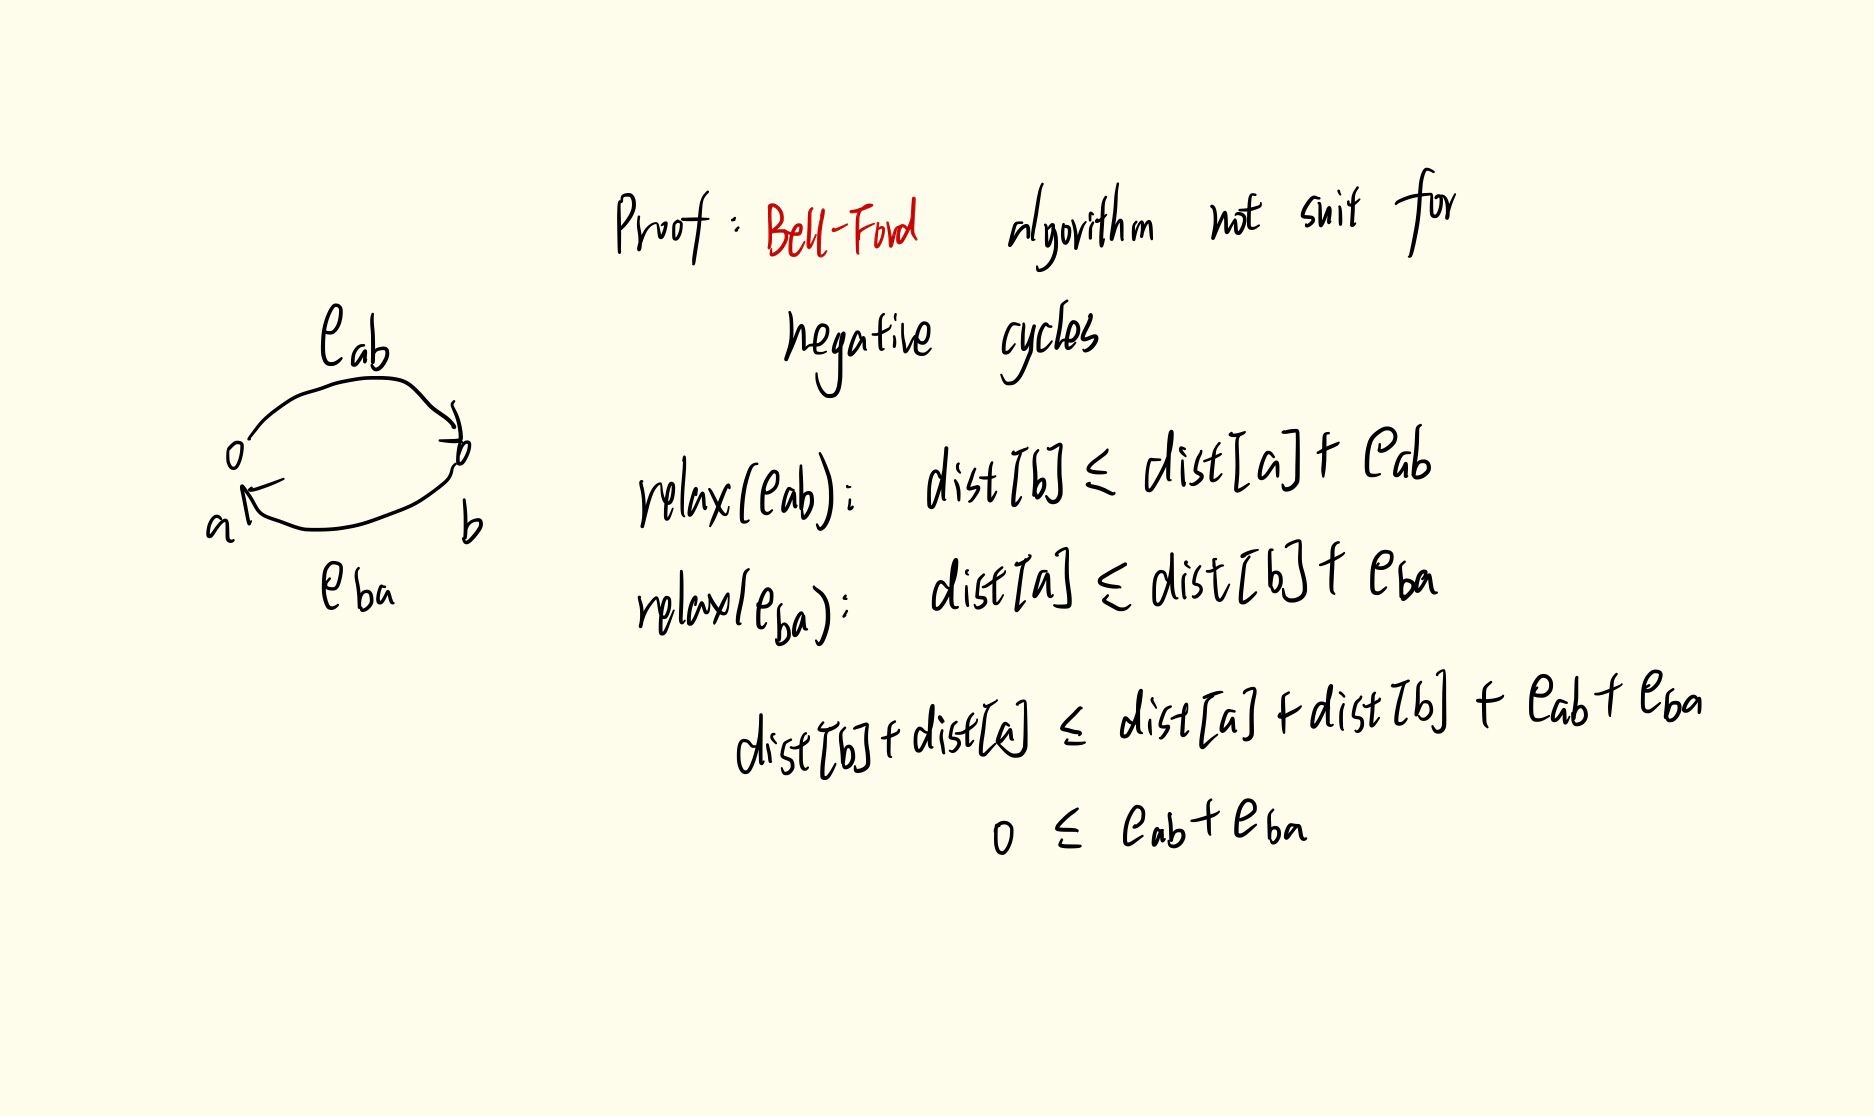 Proof: Bell-Ford algorithm not suit for
negative cycles
e_ab
a
b
e_ba
relax(e_ab): dist[b] ≤ dist[a] + e_ab
relax(e_ba): dist[a] ≤ dist[b] + e_ba
dist[b] + dist[a] ≤ dist[a] + dist[b] + e_ab + e_ba
0 ≤ e_ab + e_ba